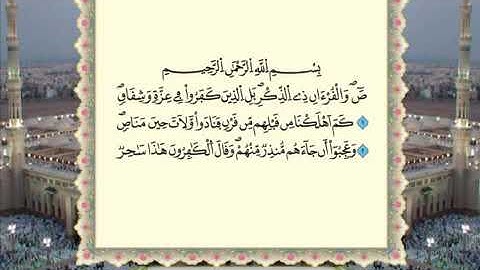 بِسْمِ اللَّهِ الرَّحْمَٰنِ الرَّحِيمِ
صٓ وَالْقُرْءَانِ ذِے الذِّكْرِ بَلِ الذِينَ كَفَرُواْ فِے عِزَّةٖ وَشِقَاقٖ
١ كَمَ اَهْلَكْنَا مِن قَبْلِهِم مِّن قَرْنٖ فَنَادَواْ وَّلَاتَ حِينَ مَنَاصٖ
٢ وَعَجِبُوٓاْ أَن جَآءَهُم مُّنذِرٞ مِّنْهُمْ وَقَالَ اَلْكَٰفِرُونَ هَٰذَا سَٰحِرٞ